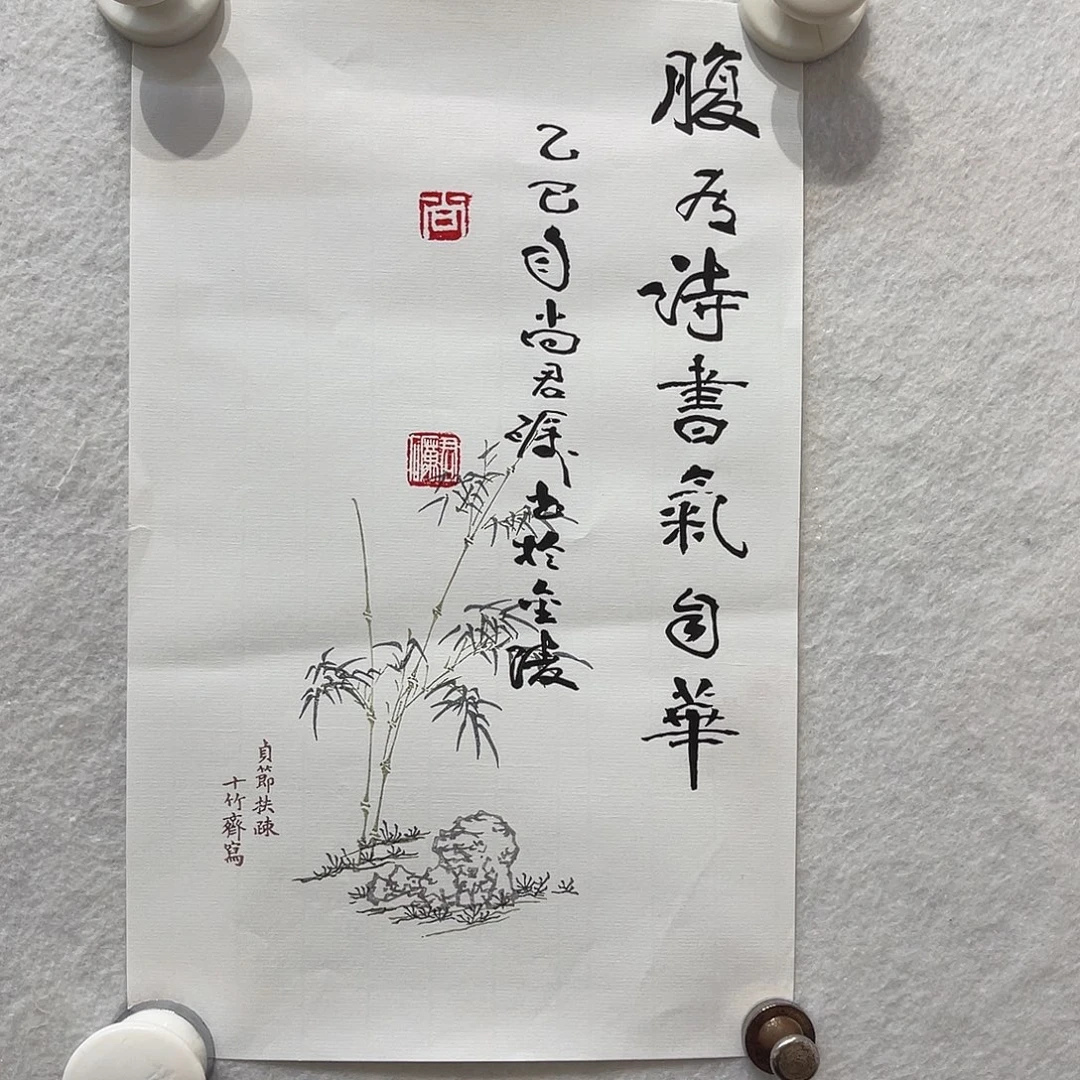 腹有诗書氣自华
乙巳自尚君
書於金陵
貞節扶疎
十竹齋寫